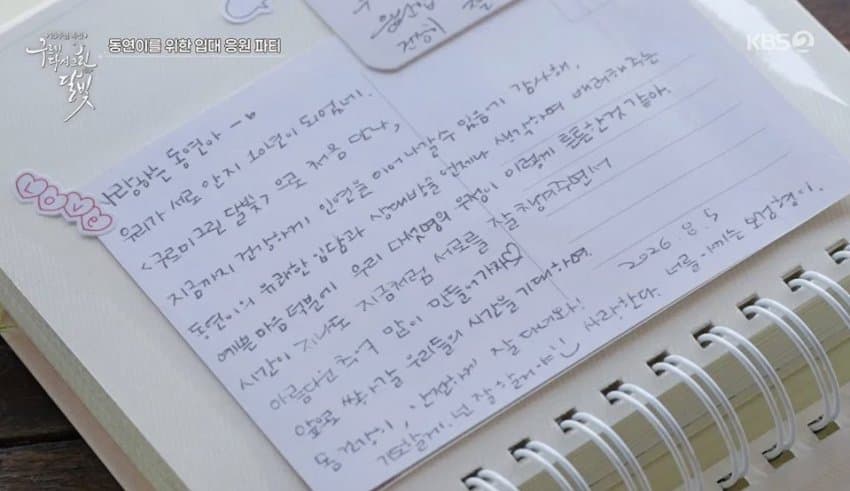 구르미
다시 그린
달빛
동연이를 위한 입대 응원 파티
KBS2
전하
LOVE
사랑하는 동연아 -
우리가 서로 안지 10년이 되었네.
<구르미 그린 달빛> 으로 처음 만나,
지금까지 건강하게 인연을 이어 나갈수 있음에 감사해.
동연이의 유쾌한 입담과 상대방을 언제나 생각하며 배려해주는
예쁜 마음 덕분에 우리 다섯명의 우정이 이렇게 튼튼한것 같아.
시간이 지나도 지금처럼 서로를 잘 챙겨주면서
아름다운 추억 많이 만들어가자♡
앞으로 쌓아갈 우리들의 시간을 기대하며
몸 건강히, 안전하게 잘 다녀와!
기도할게. 넌 잘 할거야! :) 사랑한다.
2026 8. 5
너를 아끼는 보검형이.